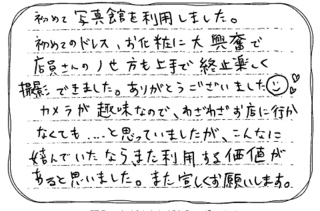 初めて写真館を利用しました。
初めてのドレス、お化粧に大興奮で
店員さんのノせ方も上手で終止楽しく
撮影できました。ありがとうございました
カメラが趣味なので、わざわざお店に行か
なくても....と思っていましたが、こんなに
嬉んでいたなら、また利用する価値が
あると思いました。また宜しくお願いします。